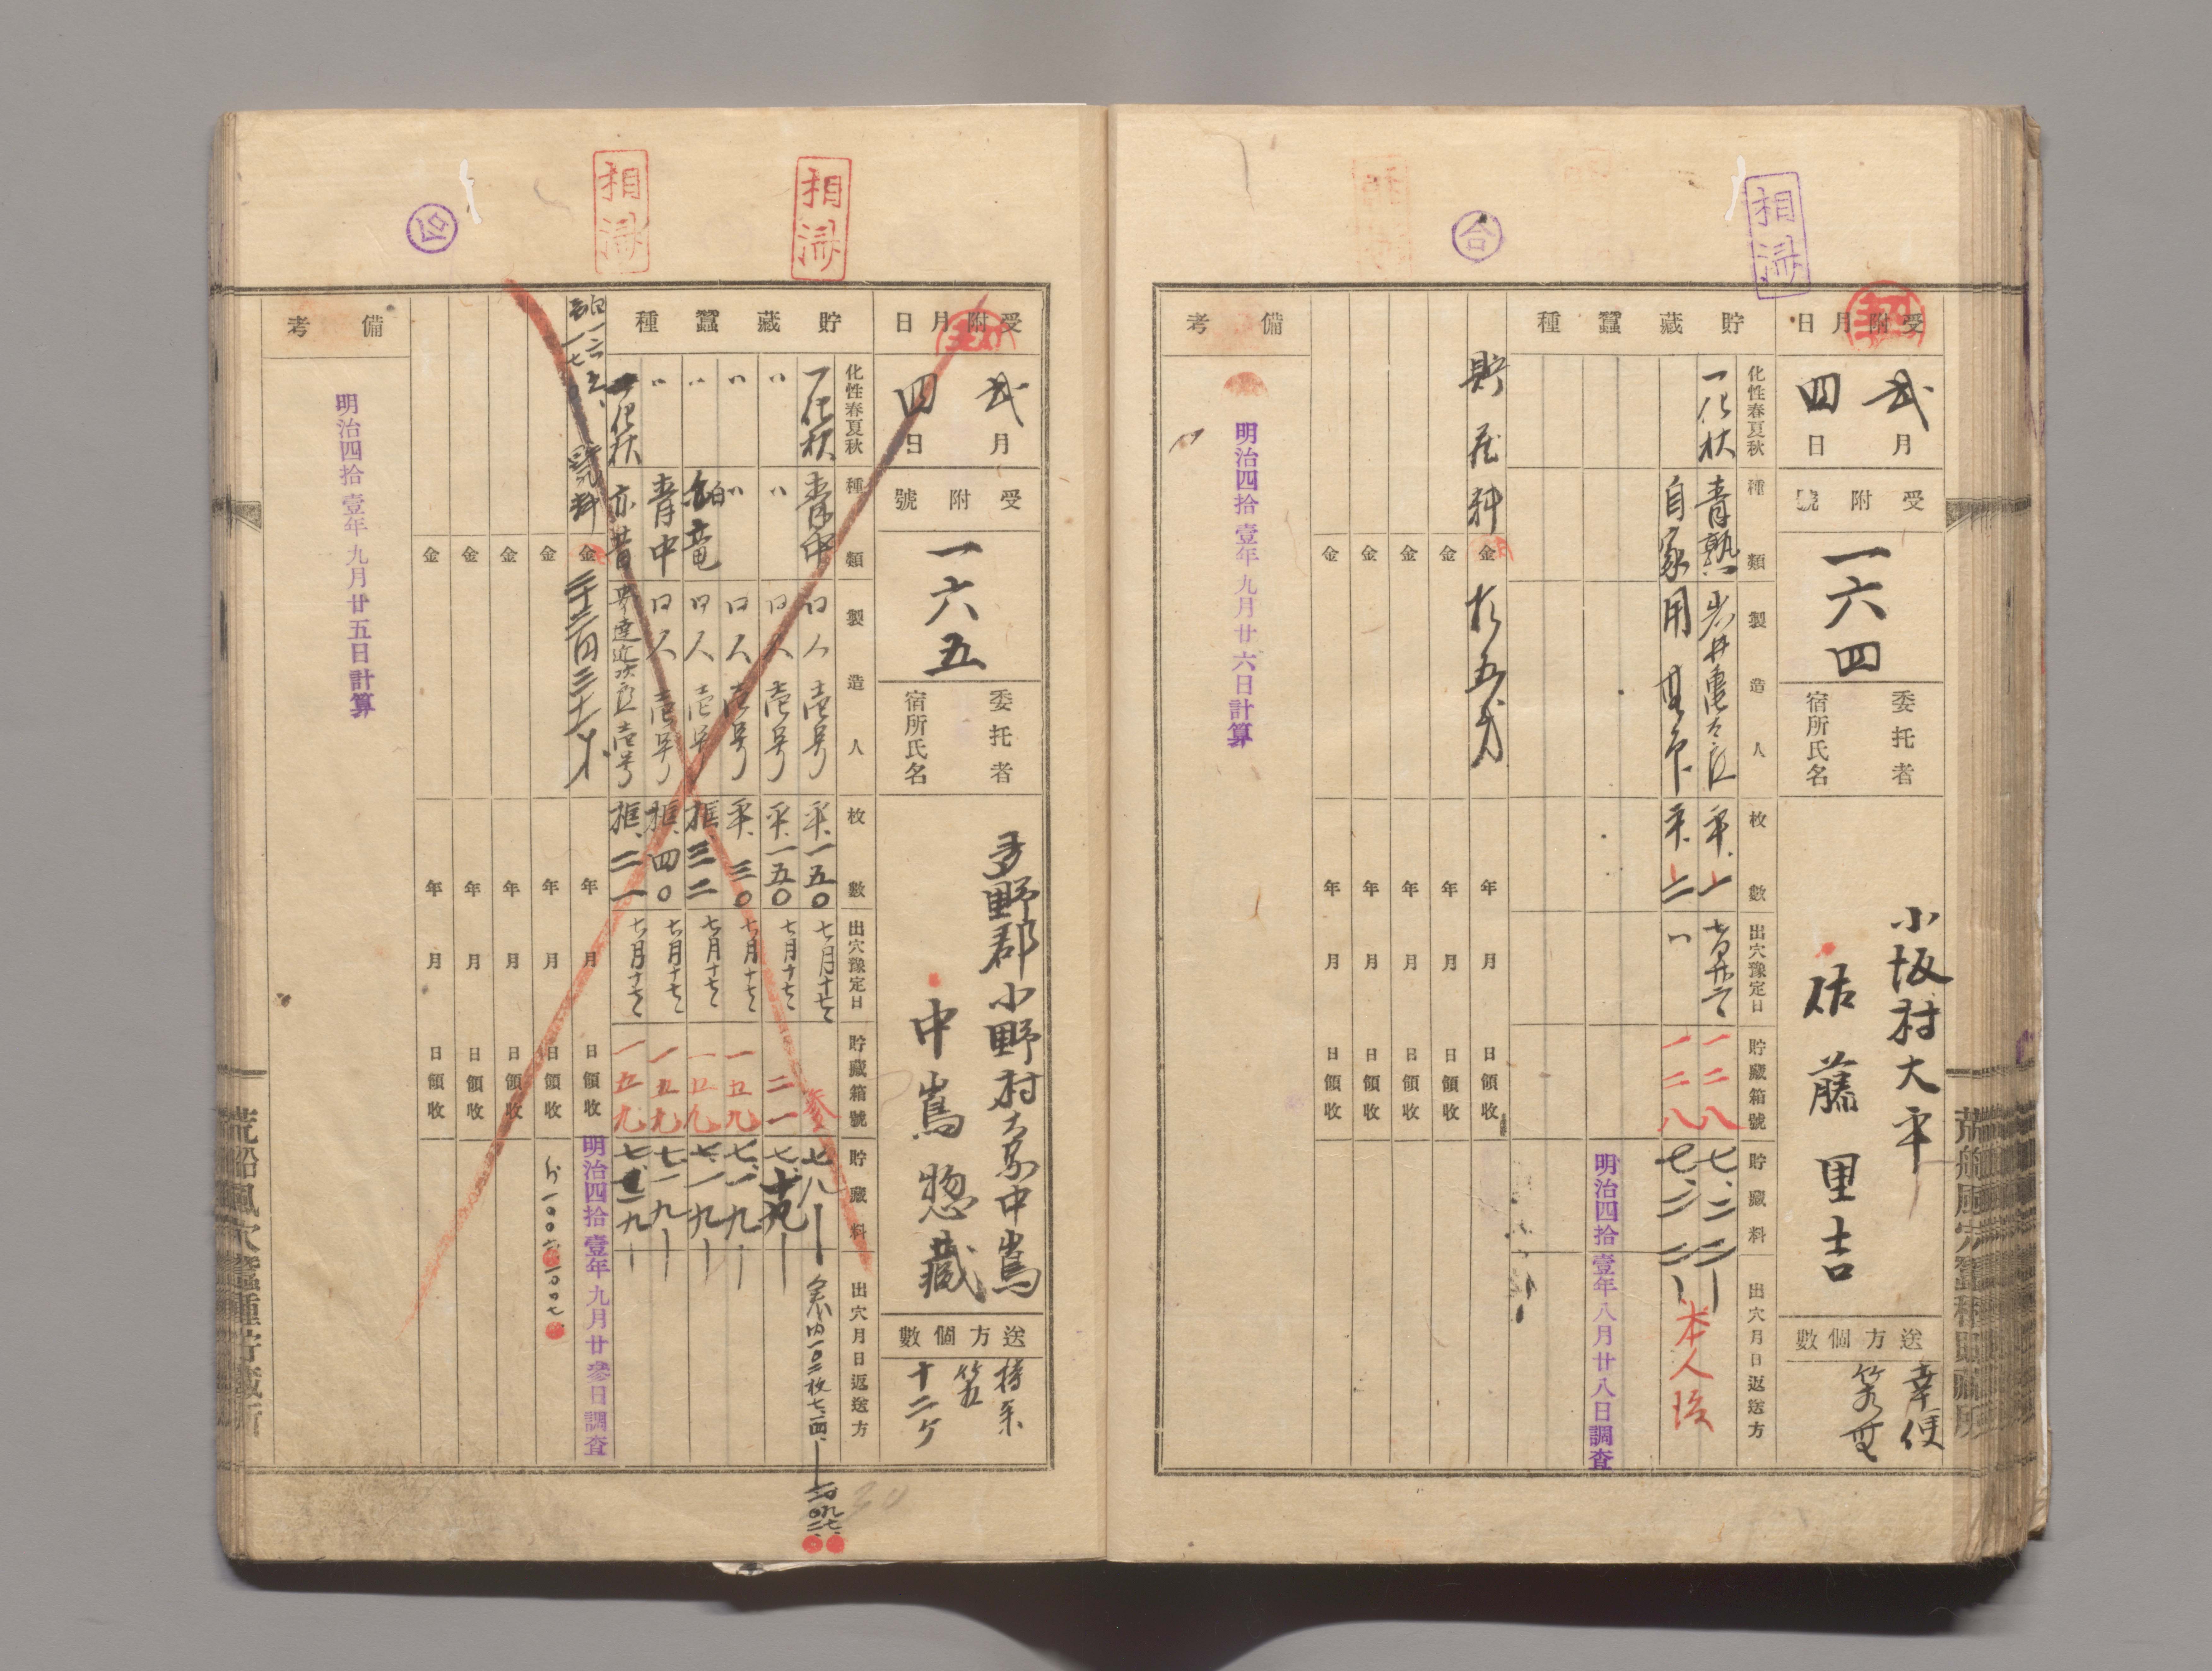 相濟
合
受附月日
貳月
四日
受附號
一六四
委托者
宿所氏名
小坂村大平
佐藤里吉
送方個數
幸便
貯藏蠶種
化性春夏秋
種類
製造人
枚數
出穴豫定日
貯藏箱號
貯藏料
出穴月日返送方
一化秋
青熟
平、一
一二八
七、二二
自家用
平、二
〃
一二八
七、二二
本人渡
明治四拾壹年八月廿八日調査
貯藏料
金
拾五戔
年月日領收
金
年月日領收
金
年月日領收
金
年月日領收
金
年月日領收
備考
明治四拾壹年九月廿六日計算
荒船風穴蠶種貯藏所
相濟
相濟
受附月日
貳月
四日
受附號
一六五
委托者
宿所氏名
多野郡小野村大字中嶌
中嶌惣藏
送方個數
持参
十二ケ
貯藏蠶種
化性春夏秋
種類
製造人
枚數
出穴豫定日
貯藏箱號
貯藏料
出穴月日返送方
一化秋
青中
口人
壱号
平、一五〇
七月十七
七、八
〃
〃
口人
壱号
平、一五〇
七月十七
二一
七、十九
〃
〃
口人
壱号
平、三〇
七月十七
一五九
七、一九
〃
白竜
口人
壱号
框、三二
七月十七
一五九
七、一九
〃
青中
口人
壱号
框、四〇
七月十七
一五九
七、一九
一化秋
亦昔
壱号
框、二一
七月十七
一五九
七、一九
明治四拾壹年九月廿參日調査
金
年月日領收
金
年月日領收
金
年月日領收
金
年月日領收
金
年月日領收
備考
明治四拾壹年九月廿五日計算
荒船風穴蠶種貯藏所